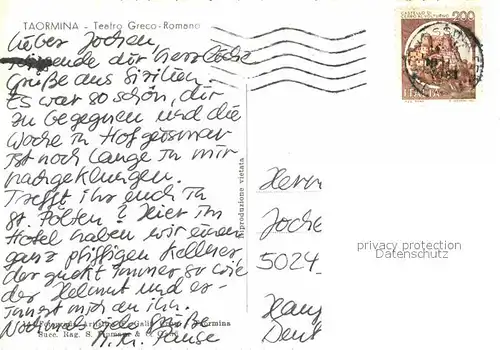 TAORMINA - Teatro Greco-Romano
Lieber Jochen,
sende dir herzliche
Grüße aus Sizilien.
Es war so schön, dir
zu begegnen und die
Woche in Hofgeismar
ist noch lange in mir
nachgeklungen.
Trefft ihr euch in
St. Pölten? Hier im
Hotel haben wir einen
ganz pfiffigen Kellner
der guckt immer so wie
der Helmut und er-
innert mich an ihn.
Nochmals liebe Grüße
Riproduzione vietata
200
ITALIA
Herrn
Joche
5024
privacy protection
Datenschutz